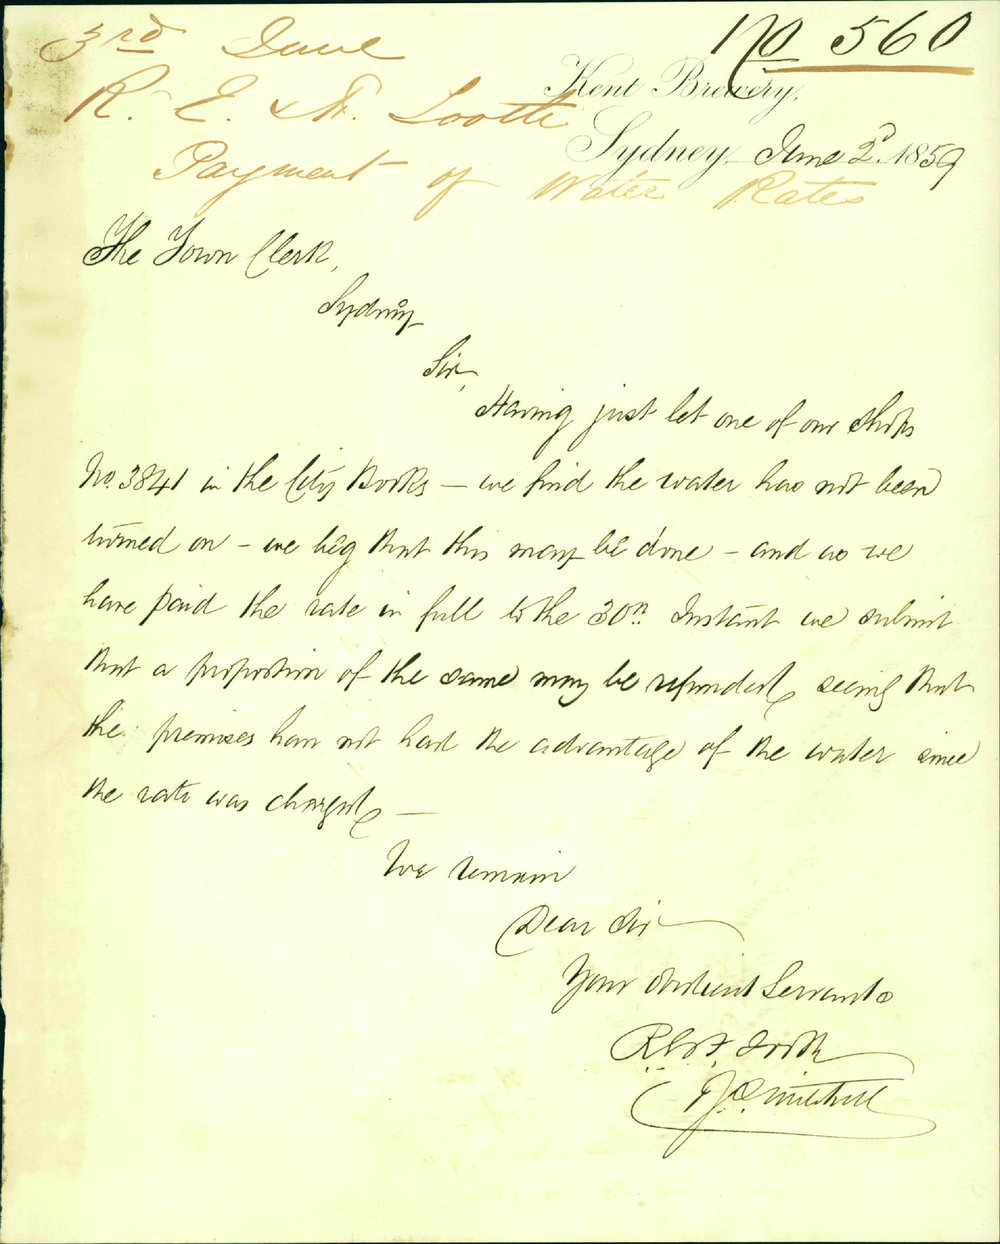 No 560
3rd June
R. E. & F. Tooth
Payment of Water Rates
Kent Brewery,
Sydney June 2d. 1859
The Town Clerk,
Sydney
Sir,
Having just let one of our Shops
No. 3841 in the City Books – we find the water has not been
turned on – we beg that this may be done – and as we
have paid the rate in full to the 30th Instant we submit
that a proportion of the same may be refunded, seeing that
the premises have not had the advantage of the water since
the rate was charged –
We remain
Dear Sir
Your Obedient Servants
R. & F. Tooth
J.S. Mitchell